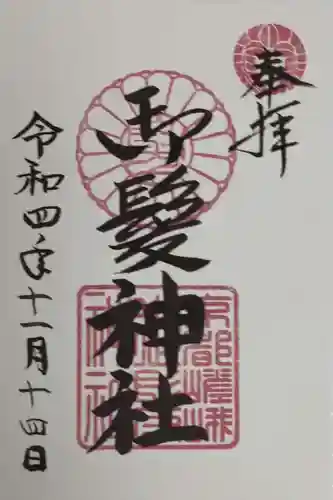 奉拝
御髪神社
令和四年十一月十四日
京都嵯峨
御髪
神社